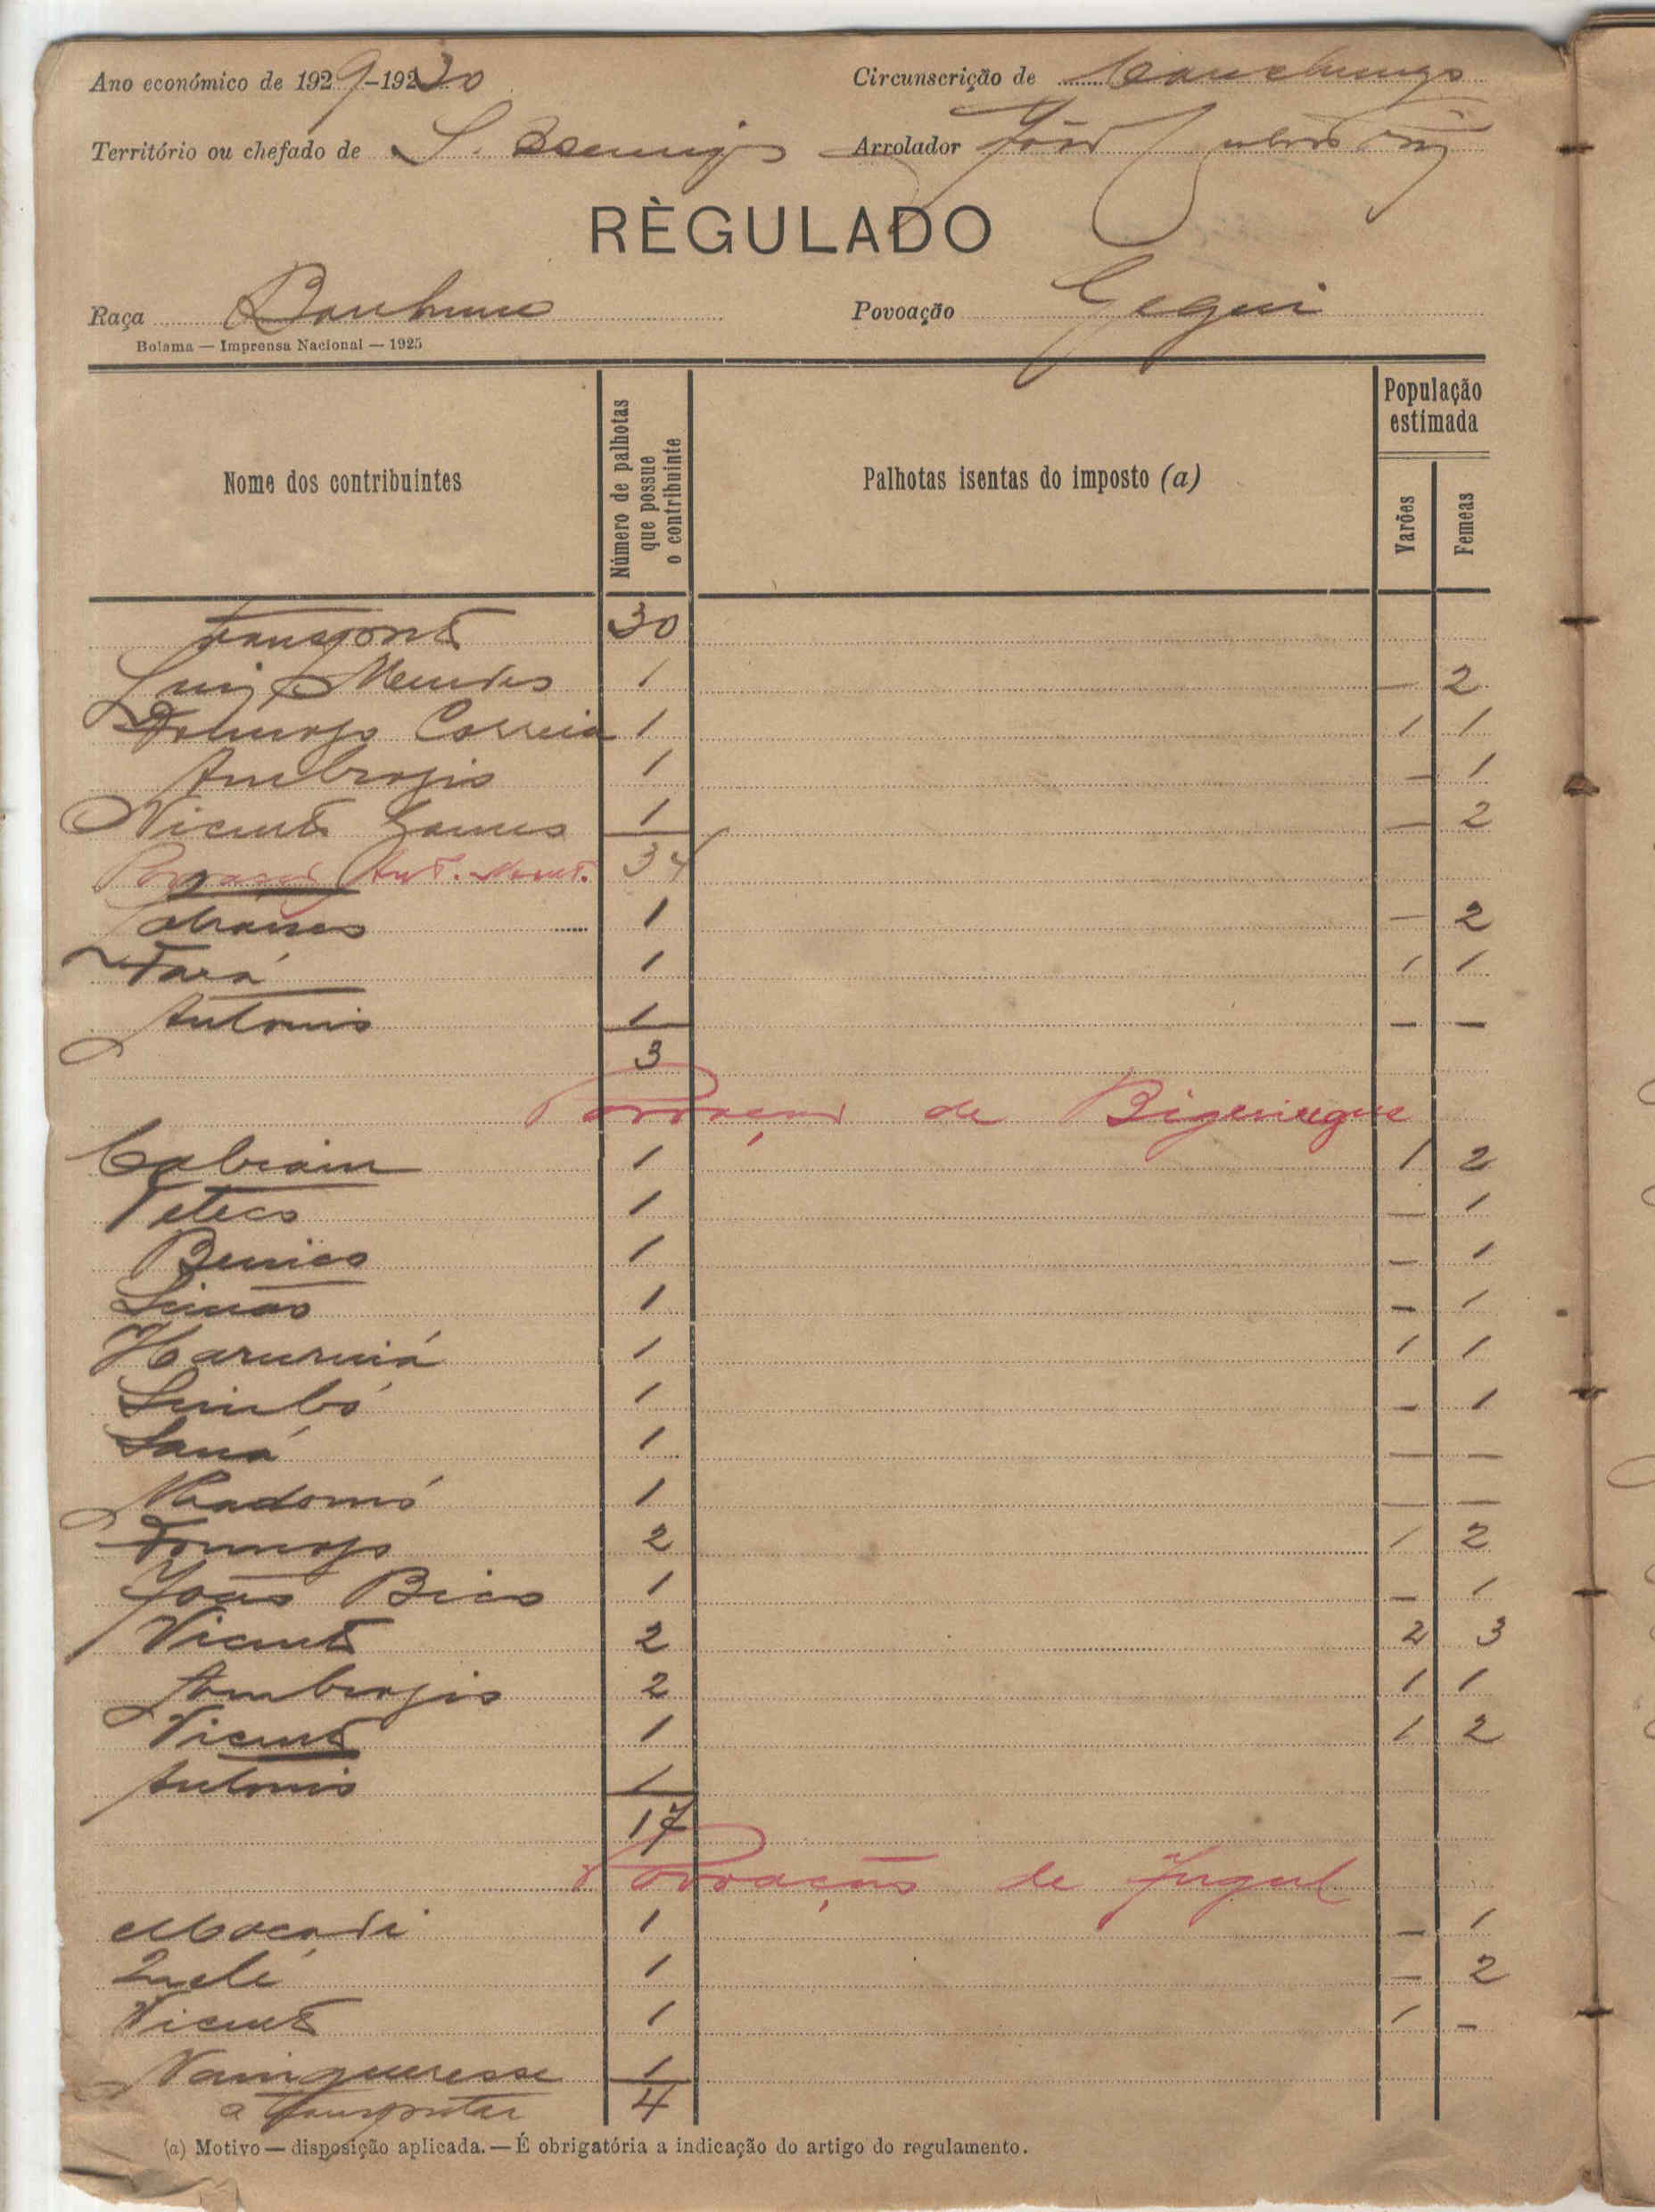 Ano económico de 1929-1930
Circunscrição de Canchungo
Território ou chefado de S. Domingos
Arrolador João
RÈGULADO
Raça Banhuns
Povoação Gegui
Bolama — Imprensa Nacional — 1925
Nome dos contribuintes
Número de palhotas que possue o contribuinte
Palhotas isentas do imposto (a)
População estimada
Varões
Femeas
Transporte 30
Luiz Mendes 1 — 2
Domingos Correia 1 1 1
Ambrosio 1 — 1
Vicente Gomes 1 — 2
Povoação Ant. 34
1 — 2
Fará 1 1 1
Antonio 1 — —
3
Povoação de
Cabraim 1 1 2
Peteco 1 — 1
Benico 1 — 1
Simão 1 — 1
1 1 1
Simbó 1 — 1
Saná 1 — —
1 — —
Domingos 2 1 2
João Bico 1 — 1
Vicente 2 2 3
Ambrosio 2 1 1
Vicente 1 1 2
Antonio 1
17
Povoação de Jugul
1 — 1
1 — 2
Vicente 1 1 —
1
a transportar 4
(a) Motivo — disposição aplicada. — É obrigatória a indicação do artigo do regulamento.